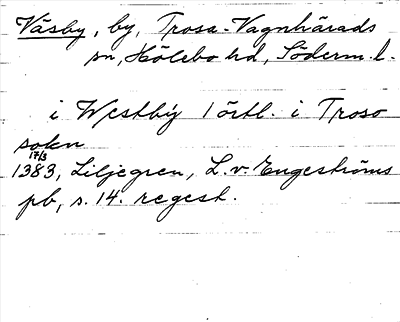 Väsby, by, Trosa-Vagnhärads
sn, Hölebo hd, Söderm. l.
i Westby 1 örtl. i Troso
sokn
17/3
1383, Liljegren, L. v. Engeströms
pb, s. 14. regest.